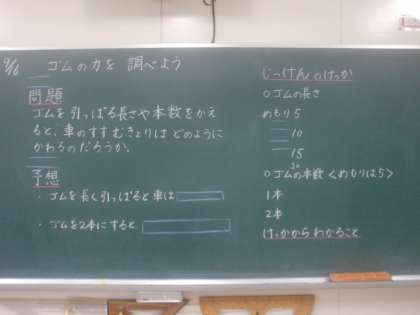 9/16 ゴムの力を 調べよう
問題
ゴムを引っぱる長さや本数をかえ
ると、車のすすむきょりは どのように
かわるのだろうか。
予想
・ゴムを長く引っぱると車は
・ゴムを2本にすると
じっけんのけっか
○ゴムの長さ
めもり5
10
15
○ゴムの本数<めもりは5>
1本
2本
けっかからわかること